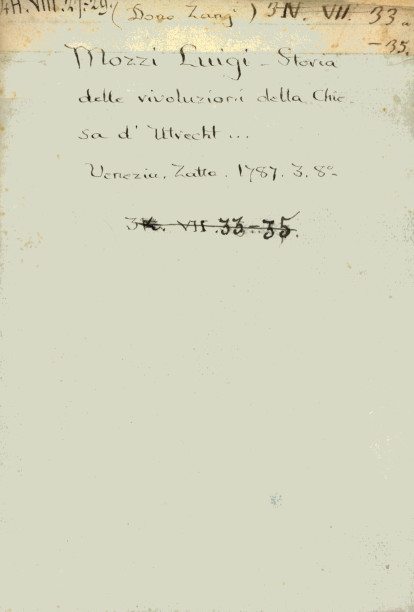 4A.VIII.27-29. (Dono Zangi) 3 N. VII. 33-
-35.
Mozzi Luigi - Storia
delle rivoluzioni della Chie
sa d' Utrecht ...
Venezia. Zatta. 1787. 3. 8º-
3N. VII. 33-35.